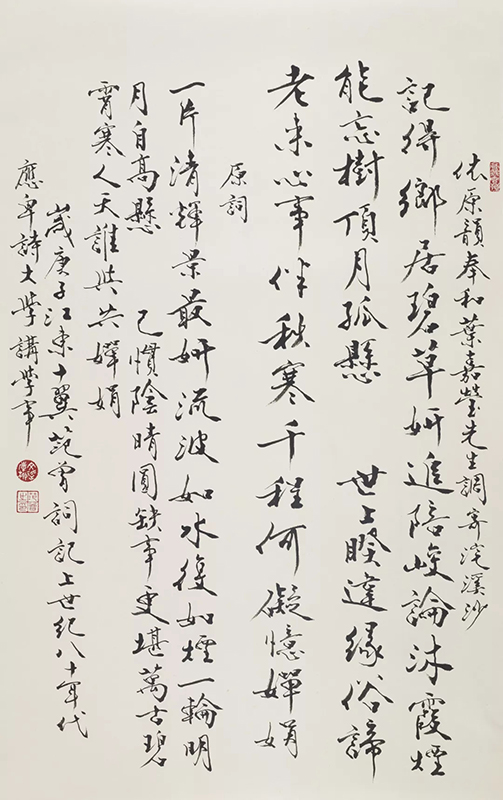 依原韻奉和葉嘉瑩先生調寄浣溪沙
記得鄉居碧草妍追陪峻論沐霞煙
能忘樹頂月孤懸 世上睽違緣俗諦
老来心事伴秋寒千程何礙憶嬋娟
原詞
一片清輝景最妍流波如水復如煙一輪明
月自高懸 已慣陰晴圓缺事更堪萬古碧
霄寒人天誰與共嬋娟
歲庚子江東十翼范曾詞記上世紀八十年代
應卑詩大學講學事